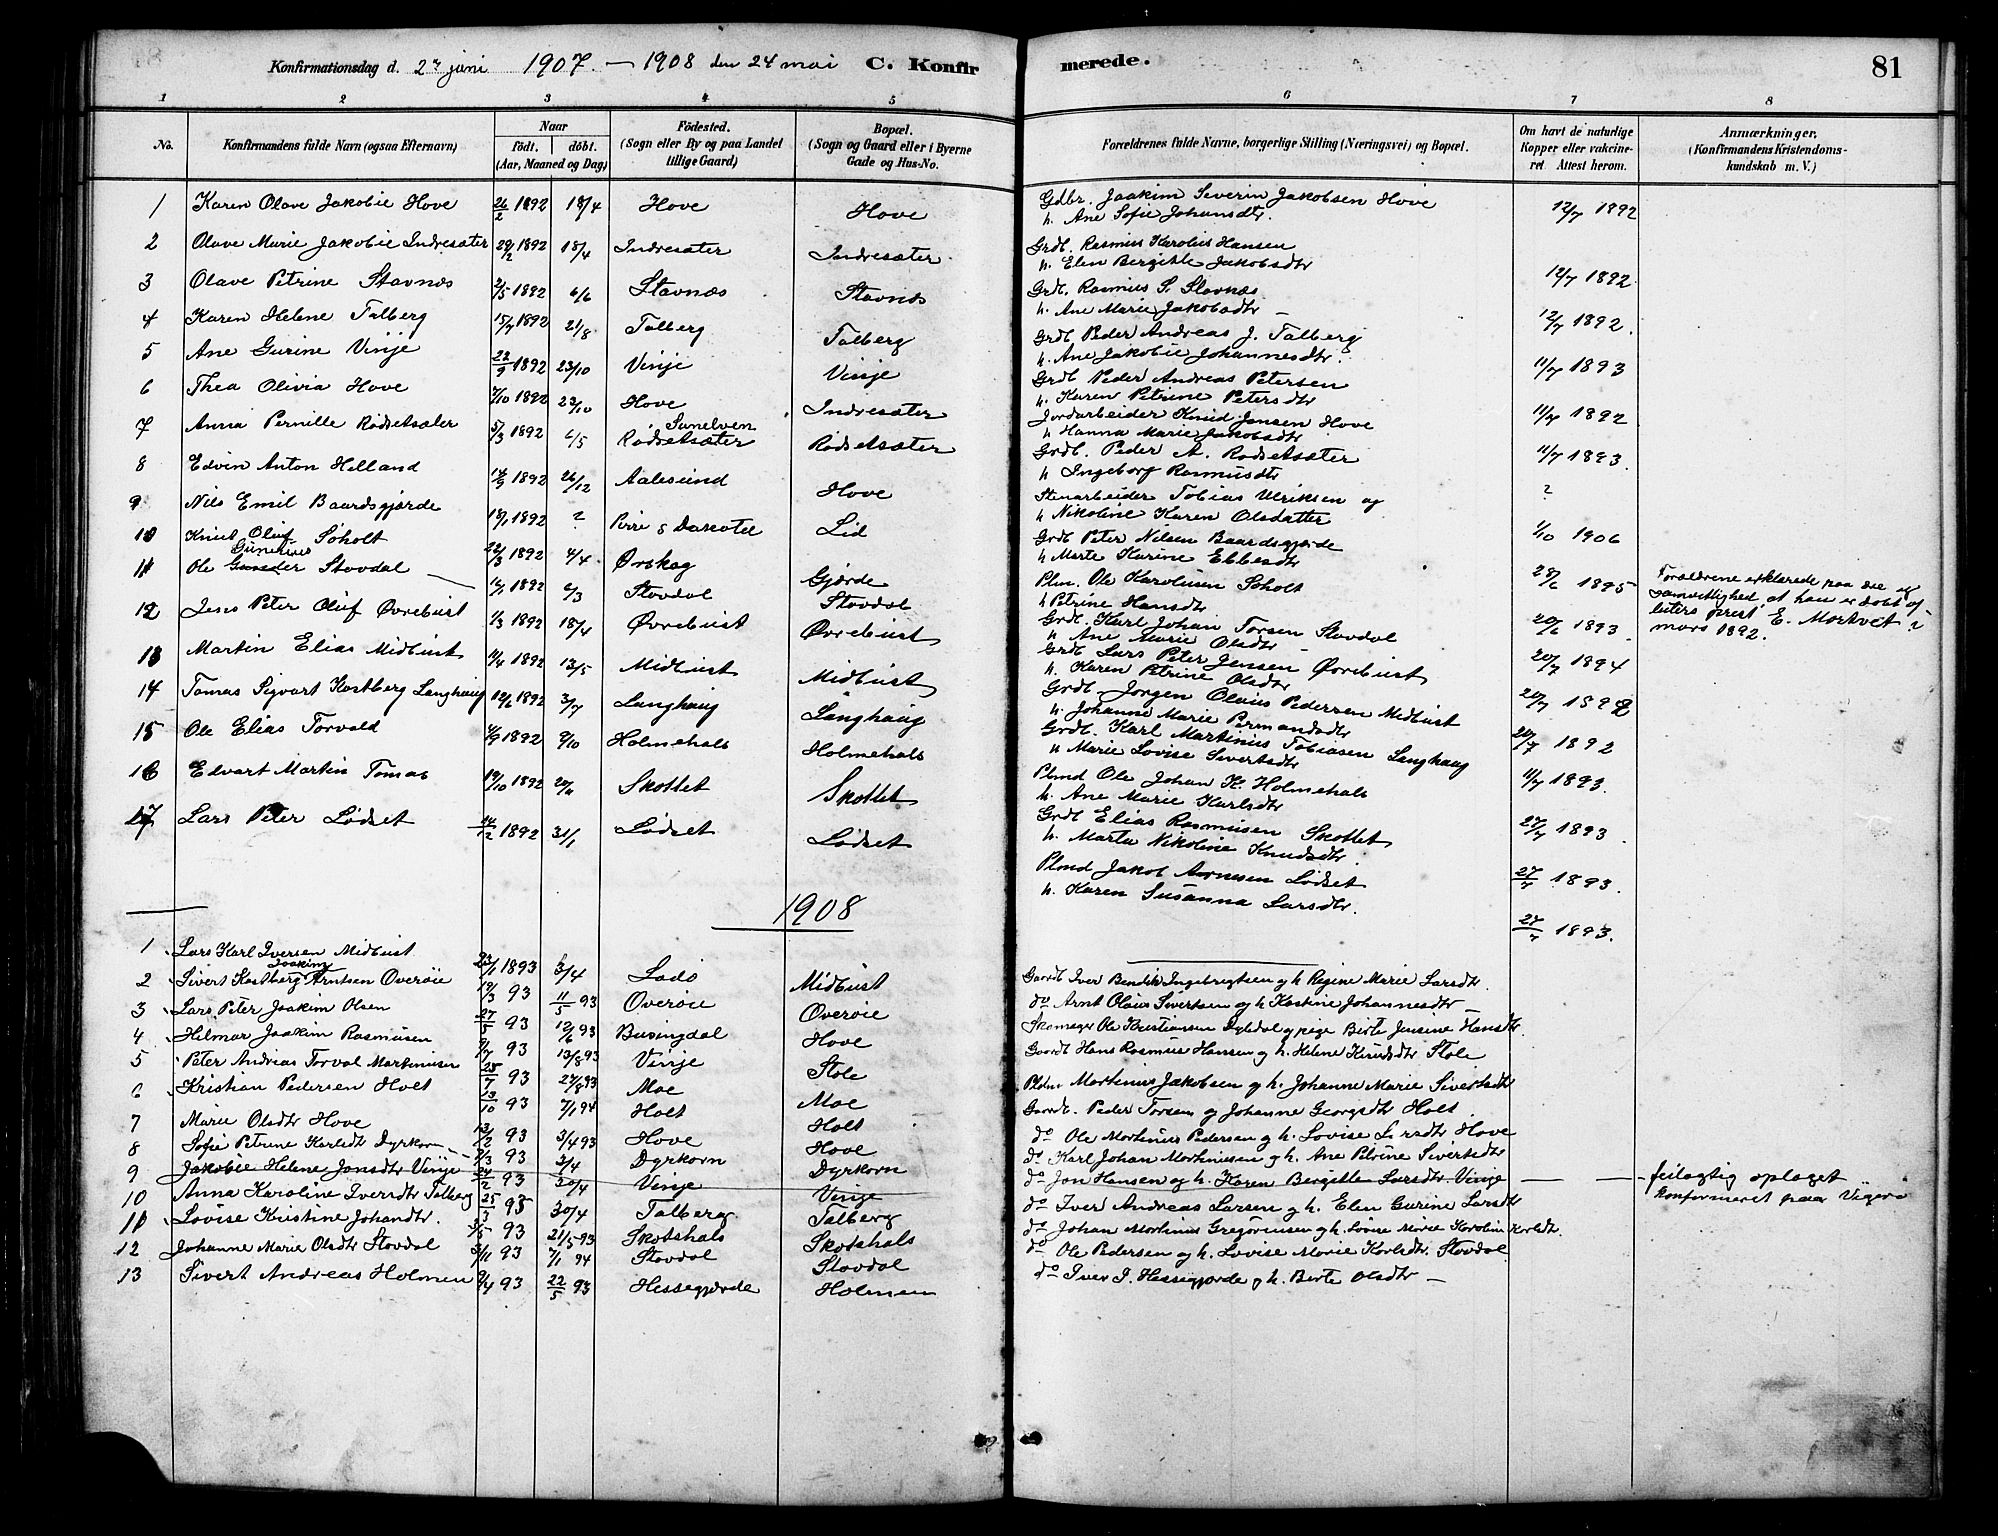 Konfirmationsdag d. 2 juni 1907. — 1908 den 24 mai C. Konfir
merede. 81
1 2 3 4 5 6 7 8
No. Konfirmandens fulde Navn (ogsaa Efternavn) Naar födt. döbt. (Aar, Maaned og Dag) Födested. (Sogn eller By og paa Landet tillige Gaard) Bopæl. (Sogn og Gaard eller i Byerne Gade og Hus-No. Forældrenes fulde Navne, borgerlige Stilling (Næringsvei) og Bopæl. Om havt de naturlige Kopper eller vakcineret Attest herom. Anmærkninger. (Konfirmandens Kristendomskundskab m. V.)
1 Karen Olave Jakobie Hove 26/2 1892 18/4 Hove Hove Gdbr. Jaakim Severin Jakobsen Hove 12/7 1892
h. Ane Sofie Johansdtr.
2 Olave Marie Jakobie Indresæter 29/2 1892 18/4 Indresæter Indresæter Grdb. Rasmus Karolius Hansen 12/7 1892
h. Elen Bergithe Jakobsdtr
3 Olave Petrine Stavnæs 2/5 1892 6/6 Stavnæs Stavnæs Grdb. Rasmus S. Stavnæs 12/7 1892.
h. Ane Marie Jakobsdtr —
4 Karen Helene Talberg 15/7 1892 21/8 Talberg Talberg Grdb Peder Andreas J. Talberg 11/7 1893
h. Ane Jakobie Johannesdtr.
5 Ane Gurine Vinje 22/9 1892 23/10 Vinje Vinje Grdb Peder Andreas Petersen 11/7 1892
h. Karen Petrine Petersdtr
6 Thea Olivia Hove 7/10 1892 23/10 Hove Indresæter Jordarbeider Knud Jensen Hove 11/7 1893.
h Hanna Marie Jakobsdtr
7 Anna Pernille Rødsetsæter 5/3 1892 6/5 Sunelven Rødsetsæter Rødsetsæter Grdb. Peder A. Rødsetsæter ?
h Ingeborg Rasmusdtr
8 Edvin Anton Helland 1892 26/12 Aalesund Hove Stenarbeider Tobias Ulriksen og 1/10 1906
h Nikoline Karen Olsdatter
9 Nils Emil Baardsgjærde 18/1 1892 ? Lid Grdb Peter Nilsen Baardsgjærde 28/6 1895 Forældrene erklærede paa
h Marte Karine Ebbesdtr samvittighed at han er døbt af
10 Knut Oluf Søholt 22/3 1892 4/4 Ørskog Gjærde Plm. Ole Karolusen Søholt 20/6 1893 prest E. Mortvet i
h Petrine Hansdtr mars 1892.
11 Ole Stovdal 1892 6/3 Stovdal Stovdal Grdb. Karl Johan Torsen Stovdal 20/7 1894
h Ane Marie Olsdtr —
12 Jens Peter Oluf Øvrebust 1/3 1892 18/4 Øvrebust Øvrebust Grdb Lars Peter Jensen Øvrebust 20/7 1892
h. Karen Petrine Olsdtr
13 Martin Elias Midbust 11/4 1892 13/5 Midbust Midbust Grdb. Jørgen Olaus Pedersen Midbust 20/7 1892
h. Johanne Marie
14 Tomas Sigvart Kastberg Langhaug 12/6 1892 3/7 Langhaug Langhaug Grdb. Karl Martinius Tobiasen Langhaug 11/7 1893.
h Marie Lovise Sivertsdtr
15 Ole Elias Torvald 4/9 1892 9/10 Holmehals Holmehals Plmd Ole Johan K. Holmehals 27/7 1893.
h. Ane Marie Karlsdtr
16 Edvart Martin Tomas 19/10 1892 Skottet Skottet Grdb Elias Rasmusen Skottet 27/7 1893.
h. Marta Nikoline Knudsdtr.
17 Lars Peter Lødset 14/12 1892 31/1 Lødset Lødset Plmd Jakob Arnesen Lødset 27/7 1893.
h. Karen Susanna Larsdtr.
1908
1 Lars Karl Iversen Midbust 1893 3/4 Midbust Gaardb Iver Bendik Ingebregtsen og h Regine Marie Larsdtr.
2 Sivert Kastberg Joakim Arntsen Overøie 19/3 93 11/5 93 Overøie Overøie do Arnt Olaus Sivertsen og h Kastine Johannesdtr —
3 Lars Peter Joakim Olsen 27/5 93 12/6 93 Busingdal Hove Skomager Ole Kristiansen og pige Birte Jensine Hansdtr.
4 Helmar Joakim Rasmusen 9/7 93 13/8 93 Vinje Stole Gaardb Hans Rasmus Hansen og h. Helene Knudsdtr Stole
5 Peter Andreas Torval Martinusen 25/7 93 27/8 93 Moe Moe Plsm Martinus Jakobsen og h. Johanne Marie Sivertsdtr
6 Kristian Pedersen Holt 13/10 93 7/1 94 Holt Holt Gaardb. Peder Torsen og Johanne Georgsdtr Holt.
7 Marie Olsdtr Hove 13/2 93 3/4 93 Hove Hove do Ole Martinus Pedersen og h. Lovise Hove
8 Sofie Petrine Karlsdtr Dyrkorn 7/3 93 3/4 Dyrkorn Dyrkorn do Karl Johan Martinusen og h. Ane Petrine Sivertsdtr
9 Jakobie Helene Jonsdtr Vinje 24/2 93 30/4 Vinje Vinje do Jon Hansen og h. Karen Bergitte Larsdtr Vinje — — feilagtig optaget
10 Anna Karoline Iversdtr Talberg 25/3 93 30/4 Talberg Talberg do Iver Andreas Larsen og h. Elen Gurine Larsdtr konfirmeret paa Vigerø
11 Lovise Kristine Johandtr. 3/5 93 21/5 93 Skotshals Skotshals do Johan Martinus Gregoriusen og h. Marie Karoline Karlsdtr.
12 Johanne Marie Olsdtr Stovdal 5/11 93 7/1 94 Stovdal Stovdal do Ole Pedersen og h. Lovise Marie Karlsdtr. Stovdal
13 Sivert Andreas Holmen 9/4 93 22/5 93 Hessegjærde Holmen do Iver I. Hessegjærde og h. Berte Olsdtr —